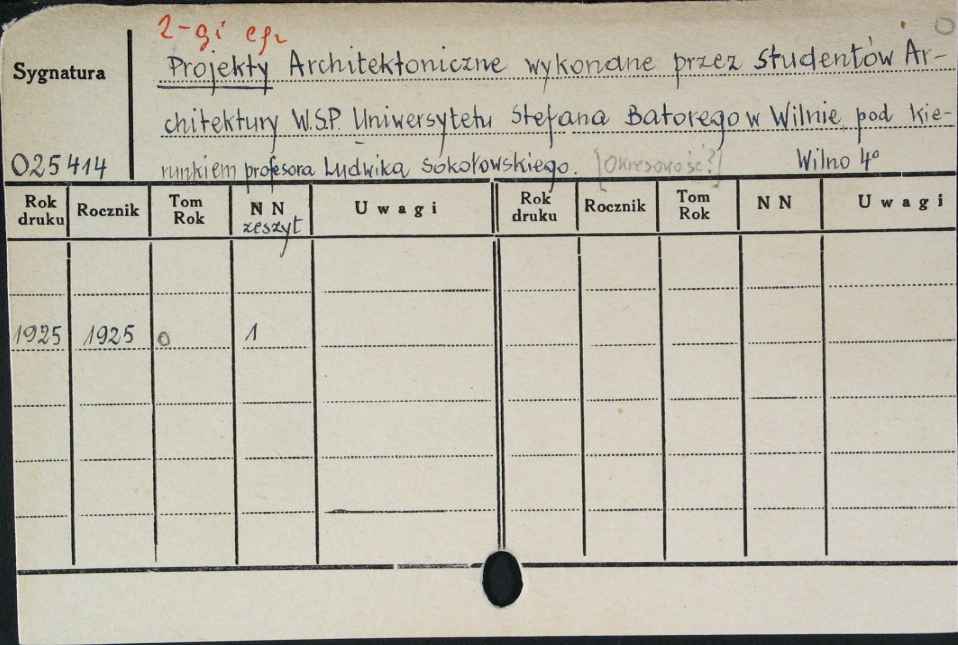 2-gi egz
Projekty Architektoniczne wykonane przez studentów Ar-
Sygnatura
chitektury W.S.P. Uniwersytetu Stefana Batorego w Wilnie pod kie-
025414 runkiem profesora Ludwika Sokołowskiego. [Okresowość?] Wilno 4º
Rok druku Rocznik Tom Rok NN zeszyt Uwagi Rok druku Rocznik Tom Rok NN Uwagi
1925 1925 0 1